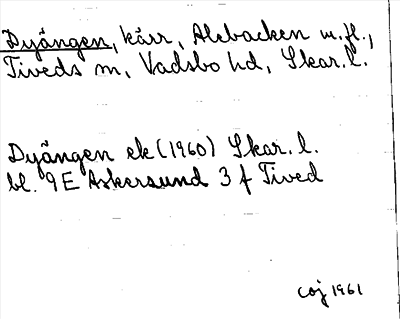 Dyängen, kärr, Alebacken m.fl.,
Tiveds sn, Vadsbo hd, Skar. l.
Dyängen ek (1960) Skar. l.
bl. 9E Askersund 3 f Tived
COJ 1961